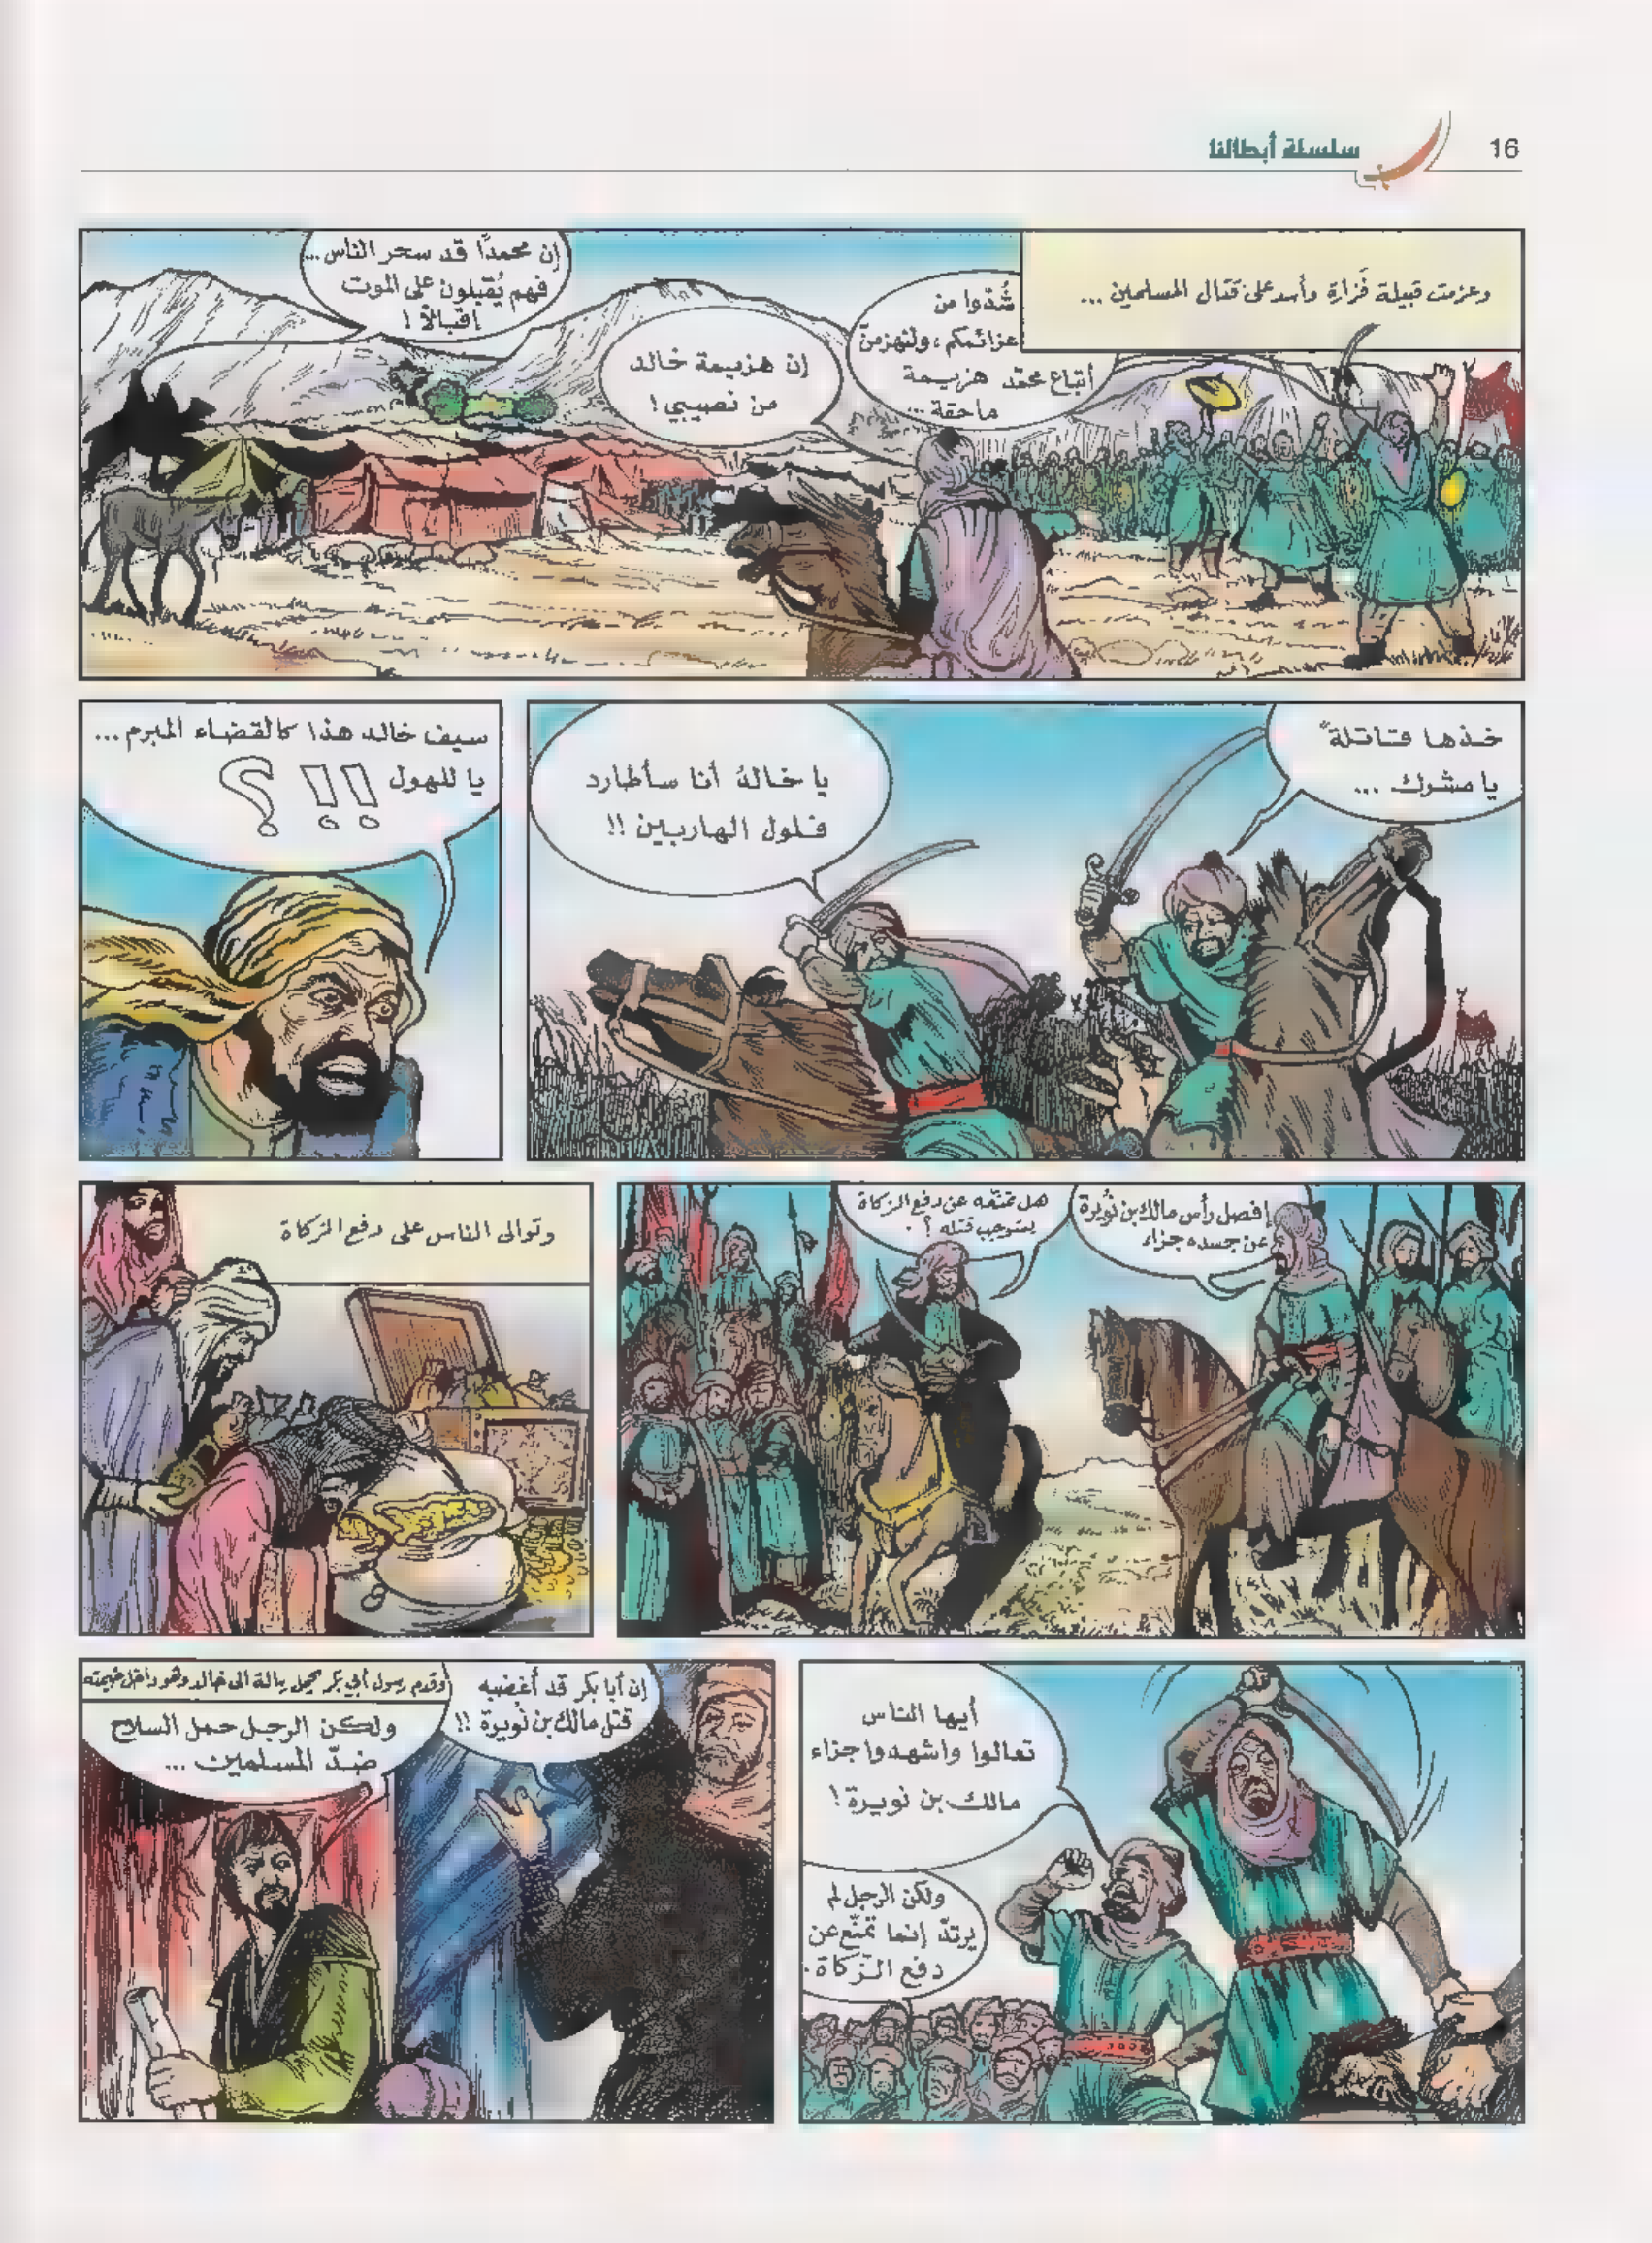 16
سلسلة أبطالنا
وعزمت قبيلة فَزارة وأسد على قتال المسلمين ...
شُدّوا من
عزائمكم ، ولنهزمنّ
أتباع محمّد هزيمة
ماحقة ...
إن هزيمة خالد
من نصيبي !
إن محمدًا قد سحر الناس ...
فهم يُقبلون على الموت
إقبالاً !
خذها قاتلة ً
يا مشرك ...
يا خالدُ أنا سأطارد
فلول الهاربين !!
سيف خالد هذا كالقضاء المبرم ...
يا للهول !! ؟
إفصل رأس مالك بن نُويرة
عن جسده جزاء
هل تمنّعه عن دفع الزكاة
يستوجب قتله ؟ .
وتوالى الناس على دفع الزكاة
أيها الناس
تعالوا واشهدوا جزاء
مالك بن نويرة !
ولكن الرجل لم
يرتدّ إنما تمنّع عن
دفع الزّكاة .
وقدم رسول أبي بكر يحمل رسالة الى خالد وهو داخل خيمته
إن أبا بكر قد أغضبه
قتل مالك بن نُويرة !!
ولكن الرجل حمل السلاح
ضدّ المسلمين ...